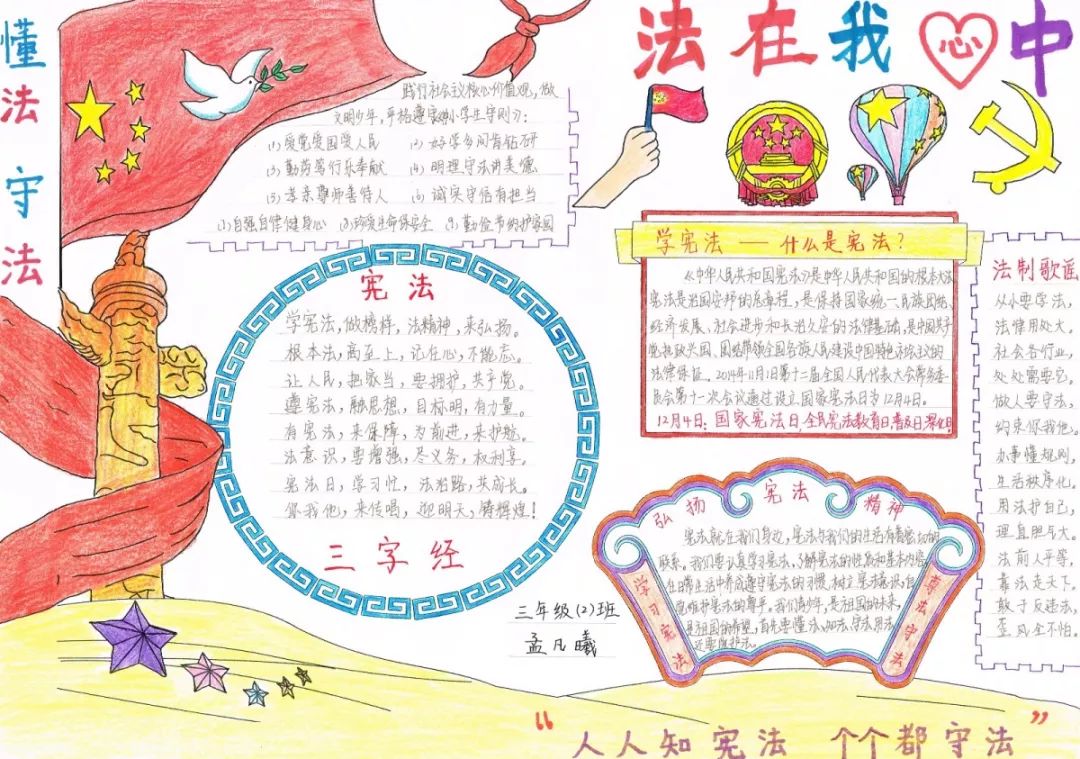 懂法守法
法在我心中
践行社会主义核心价值观，做
文明少年，严格遵守中小学生守则：
(1)爱党爱国爱人民 (2)好学多问肯钻研
(3)勤劳笃行乐奉献 (4)明理守法讲美德
(5)孝亲尊师善待人 (6)诚实守信有担当
(7)自强自律健身心 (8)珍爱生命保安全 (9)勤俭节约护家园
宪法
学宪法，做榜样，法精神，来弘扬。
根本法，高至上，记在心，不能忘。
让人民，把家当，要拥护，共产党。
遵宪法，融思想，目标明，有力量。
有宪法，来保障，为前进，来护航。
法意识，要增强，尽义务，权利享。
宪法日，学习忙，法治路，共成长。
你我他，来传唱，迎明天，铸辉煌！
三字经
三年级(2)班
孟凡曦
学宪法 — 什么是宪法？
《中华人民共和国宪法》是中华人民共和国的根本大法
宪法是治国安邦的总章程，是保持国家统一、民族团结、
经济发展、社会进步和长治久安的法律基础，是中国共产
党执政兴国、团结带领全国各族人民建设中国特色社会主义的
法律保证。2014年11月1日第十二届全国人民代表大会常务委
员会第十一次会议通过设立国家宪法日为12月4日。
12月4日：国家宪法日，全民宪法教育日，普及日，深化日
法制歌谣
从小要学法，
法律用处大。
社会各行业，
处处需要它。
做人要守法，
约束你我他。
办事懂规则，
生活秩序化。
用法护自己，
理直胆与大。
法前人平等，
靠法走天下。
敢于反违法，
歪风全不怕。
弘扬宪法精神
学习宪法
宪法就在我们身边，宪法与我们的生活有着密切的
联系。我们要认真学习宪法，了解宪法的性质和基本内容，
在日常生活中养成遵守宪法的习惯，树立宪法意识，自
觉维护宪法的尊严。我们青少年，是祖国的未来，
是祖国的希望，首先要懂法、知法、守法、用法，
还要维护法。
遵法守法
“人人知宪法 个个都守法”